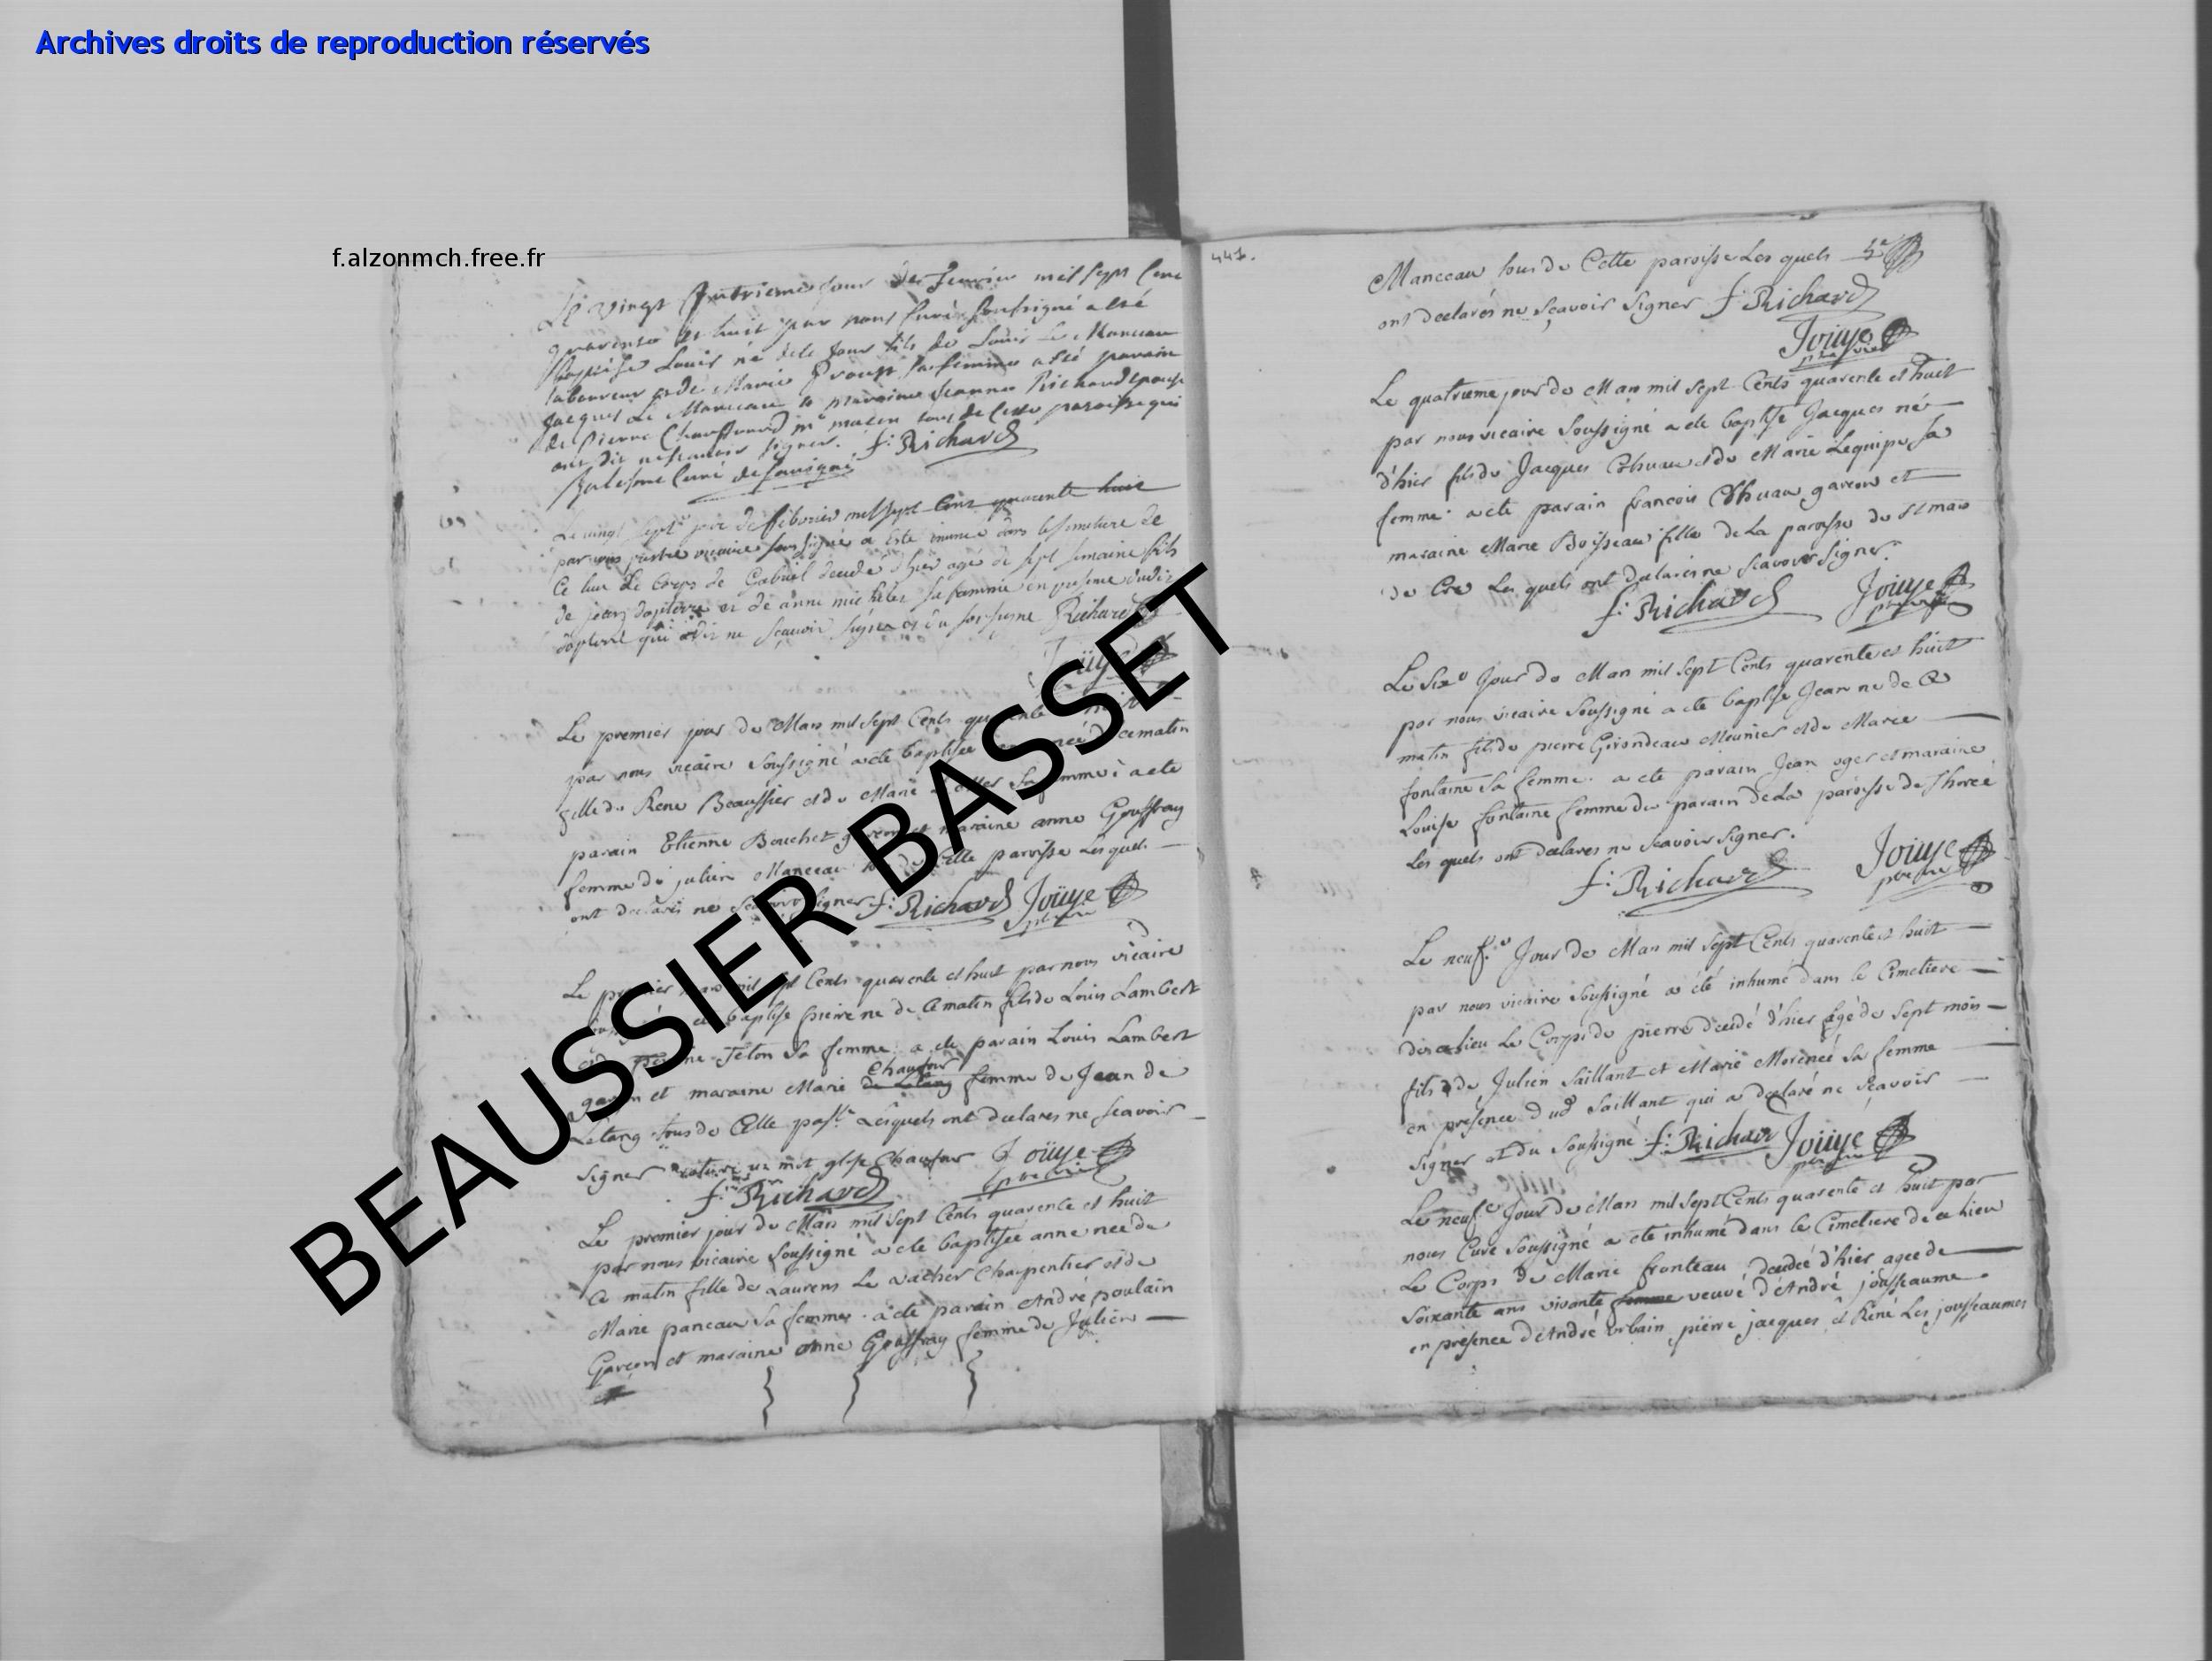 Archives droits de reproduction réservés
f.alzonmch.free.fr
BEAUSSIER BASSET
Le vingt jour de mil sept Cent
quarente et huit par nous Curé soussigné a esté
Louis né de ce jour fils de Louis Le Manceau
laboureur et de Marie sa femme a esté parain
Jacques Le Manceau la maraine Jeanne Richard epouse
de Pierre tous de cette paroisse qui
ont dit ne signer. f: Richard
Curé de
Le vingt sept jour de febvrier mil sept Cent quarente huit
par nous vicaire soussigné a esté inhumé dans le de
Ce lieu Le Corps de Gabriel décédé d'hier agé de sept semaine fils
de jean et de anne sa femme en presence dudit
qui a dit ne sçauoir signer et du soussigné Richard
Joüye
Le premier jour de Mars mil sept Cents
par nous vicaire soussigné a eté baptisée née de ce matin
fille de Rene Beaussier et de Marie sa femme a eté
parain Etienne Bouchet garcon et maraine anne Gouffray
femme de julien Manceau de Cette paroisse Lesquels
ont declarés ne signer f: Richard Joüye
Le premier mars mil sept Cents quarente et huit par nous vicaire
baptisé pierre né de Ce matin fils de Louis Lambert
Jeton sa femme a eté parain Louis Lambert
Chaufour
garcon et maraine Marie de Letang femme de Jean de
Letang tous de Cette parsse Lesquels ont declares ne sçavoir
signer un mot glose Chaufour Joüye
f: Richard
Le premier jour de Mars mil sept Cents quarente et huit
par nous vicaire soussigné a eté baptisée anne née de
Ce matin fille de Laurens Le vacher Charpentier et de
Marie panceau sa femme a eté parain André poulain
Garcon et maraine anne Gouffray femme de Julien
441.
Manceau tous de Cette paroisse Les quels
ont declarés ne sçavoir signer f: Richard
Joüye
Le quatrieme jour de Mars mil sept Cents quarente et huit
par nous vicaire soussigné a eté baptisé Jacques né
d'hier fils de Jacques et de Marie Lequipe sa
femme a eté parain francois garcon et
maraine Marie Boisseau fille de La paroisse de
de Cre Les quels ont declarés ne sçavoir signer
f: Richard Joüye
Le sixe Jour de Mars mil sept Cents quarente et huit
par nous vicaire soussigné a eté baptisé Jean né de Ce
matin fils de pierre Girondeau Meunier et de Marie
fontaine sa femme. a eté parain Jean oger et maraine
Louise fontaine femme du parain de La paroisse de Thorcé
Les quels ont declares ne sçavoir signer.
f: Richard Joüye
Le neuf.e Jour de Mars mil sept Cents quarente et huit
par nous vicaire soussigné a eté inhumé dans le Cimetiere
de ce lieu Le Corps de pierre decedé d'hier agé de sept mois
fils de Julien Saillant et Marie Morencé sa femme
en presence dud Saillant qui a declaré ne sçavoir
signer et du soussigné f: Richard Joüye
Le neuf.e Jour de Mars mil sept Cents quarente et huit par
nous Curé soussigné a eté inhumé dans le Cimetiere de ce lieu
Le Corps de Marie fronteau decedée d'hier agée de
soixante ans vivante femme veuve d'André jousseaume
en presence d'André urbain pierre jacques et René Les jousseaumes